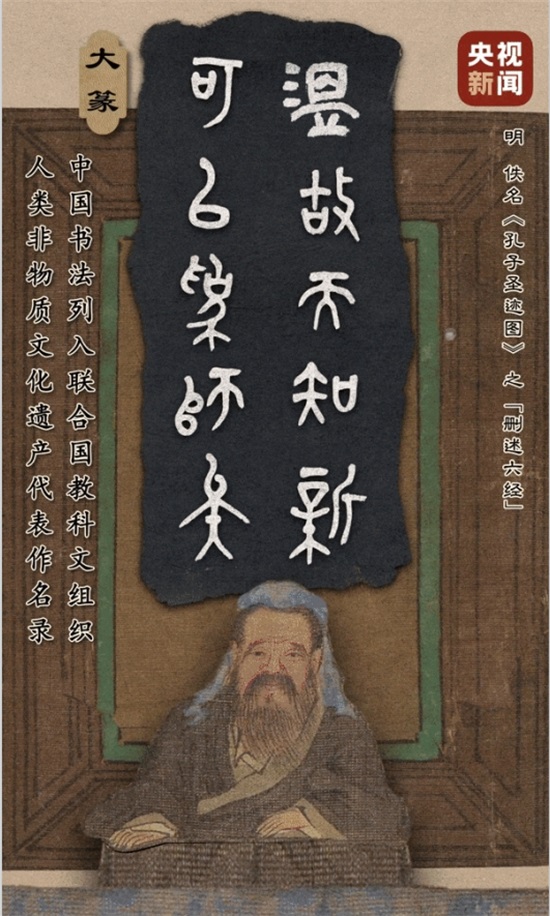 央视
新闻
明 佚名《孔子圣迹图》之「删述六经」
溫故而知新
可以為師矣
大篆
中国书法列入联合国教科文组织
人类非物质文化遗产代表作名录